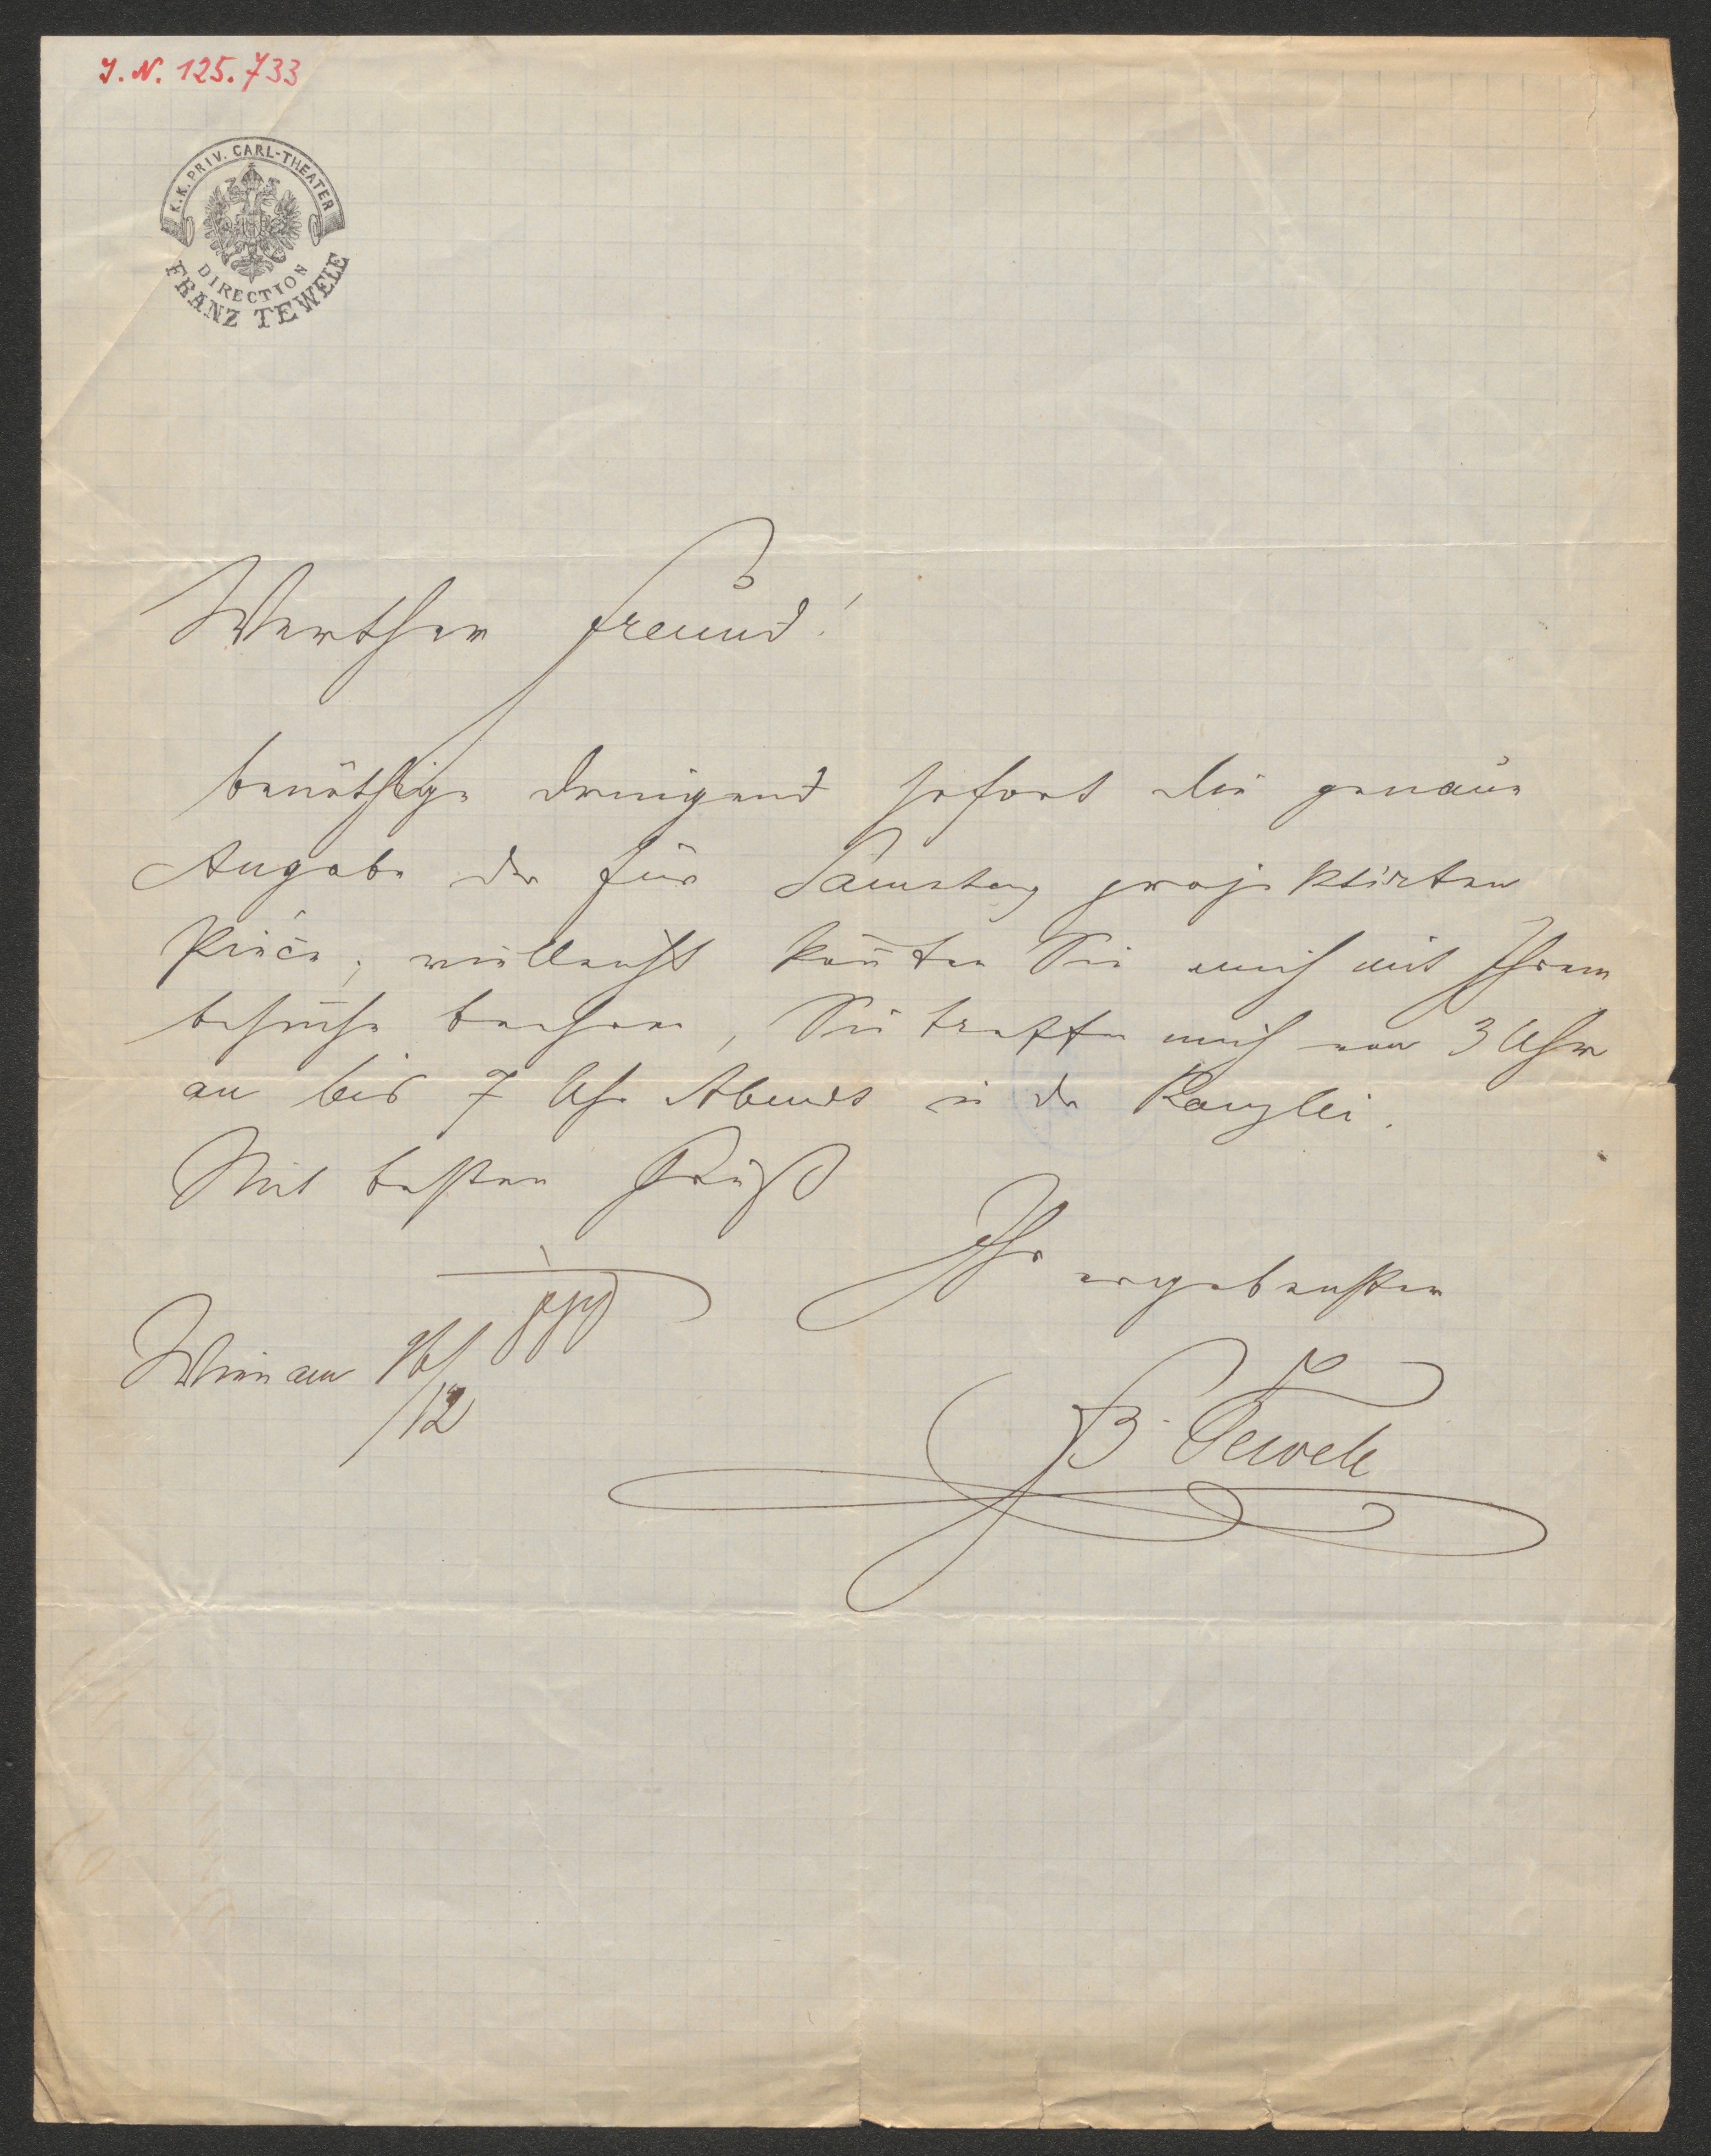 J. N. 125.733
K. K. PRIV. CARL-THEATER
DIRECTION
FRANZ TEWELE
Werther Freund!
benöthige dringend sofort die genaue
Angabe der für Samstag projektirten
Pièce; vielleicht könnten Sie mich mit Ihrem
besuche beehren, Sie treffen mich von 3 Uhr
an bis 7 Uhr Abends in der Kanzlei.
Mit besten Gruß
Ihr ergebenster
Wien am
/12
F. Tewele